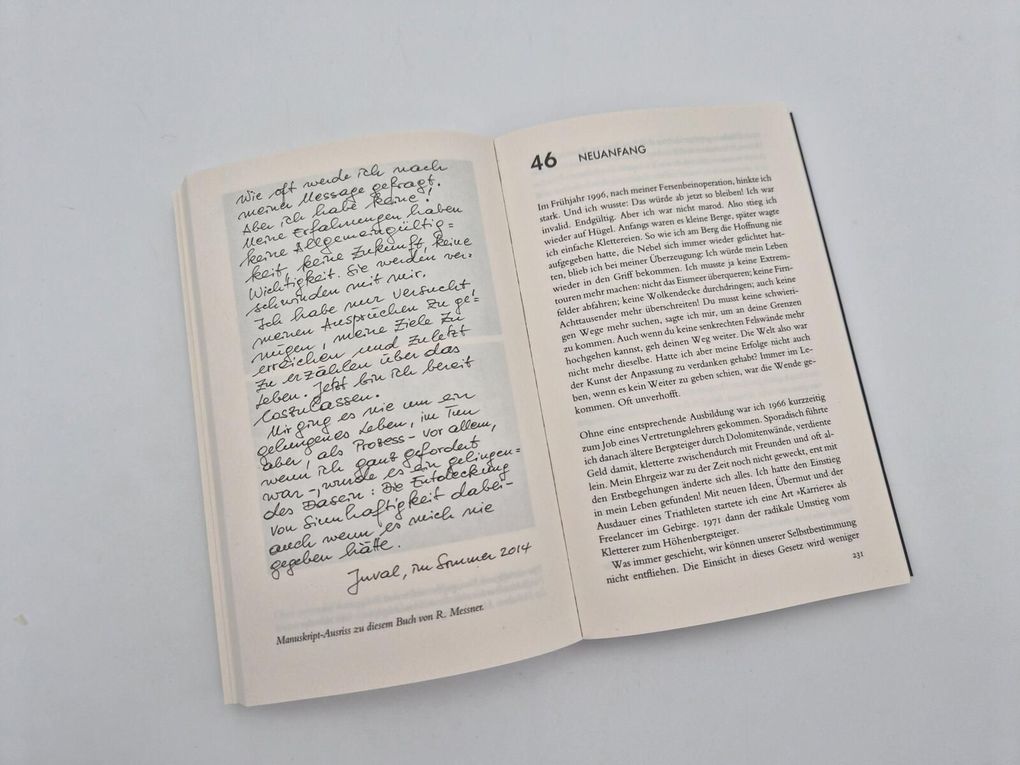 Wie oft werde ich nach
meiner Message gefragt.
Aber ich habe keine!
Meine Erfahrungen haben
keine Allgemeingültig=
keit, keine Zukunft, keine
Wichtigkeit. Sie werden ver-
schwinden mit mir.
Ich habe nur versucht
meinen Ansprüchen zu ge=
nügen, meine Ziele zu
erreichen und zuletzt
zu erzählen über das
Leben. Jetzt bin ich bereit
loszulassen.
Mir ging es nie um ein
gelungenes Leben, im Tun
aber, als Prozess – vor allem,
wenn ich ganz gefordert
war –, wurde es ein gelingen=
des Dasein: Die Entdeckung
von Sinnhaftigkeit dabei –
auch wenn es mich nie
gegeben hätte.
Juval, im Sommer 2014
Manuskript-Ausriss zu diesem Buch von R. Messner.
46 NEUANFANG
Im Frühjahr 1996, nach meiner Fersenbeinoperation, hinkte ich
stark. Und ich wusste: Das würde ab jetzt so bleiben! Ich war
invalid. Endgültig. Aber ich war nicht marod. Also stieg ich
wieder auf Hügel. Anfangs waren es kleine Berge, später wagte
ich einfache Klettereien. So wie ich am Berg die Hoffnung nie
aufgegeben hatte, die Nebel sich immer wieder gelichtet hat-
ten, blieb ich bei meiner Überzeugung: Ich würde mein Leben
wieder in den Griff bekommen. Ich musste ja keine Extrem-
touren mehr machen: nicht das Eismeer überqueren; keine Firn-
felder abfahren; keine Wolkendecke durchdringen; auch keine
Achttausender mehr überschreiten! Du musst keine schwieri-
gen Wege mehr suchen, sagte ich mir, um an deine Grenzen
zu kommen. Auch wenn du keine senkrechten Felswände mehr
hochgehen kannst, geh deinen Weg weiter. Die Welt also war
nicht mehr dieselbe. Hatte ich aber meine Erfolge nicht auch
der Kunst der Anpassung zu verdanken gehabt? Immer im Le-
ben, wenn es kein Weiter zu geben schien, war die Wende ge-
kommen. Oft unverhofft.
Ohne eine entsprechende Ausbildung war ich 1966 kurzzeitig
zum Job eines Vertretungslehrers gekommen. Sporadisch führte
ich danach ältere Bergsteiger durch Dolomitenwände, verdiente
Geld damit, kletterte zwischendurch mit Freunden und oft al-
lein. Mein Ehrgeiz war zu der Zeit noch nicht geweckt, erst mit
den Erstbegehungen änderte sich alles. Ich hatte den Einstieg
in mein Leben gefunden! Mit neuen Ideen, Übermut und der
Ausdauer eines Triathleten startete ich eine Art »Karriere« als
Freelancer im Gebirge. 1971 dann der radikale Umstieg vom
Kletterer zum Höhenbergsteiger.
Was immer geschieht, wir können unserer Selbstbestimmung
nicht entfliehen. Die Einsicht in dieses Gesetz wird weniger
231